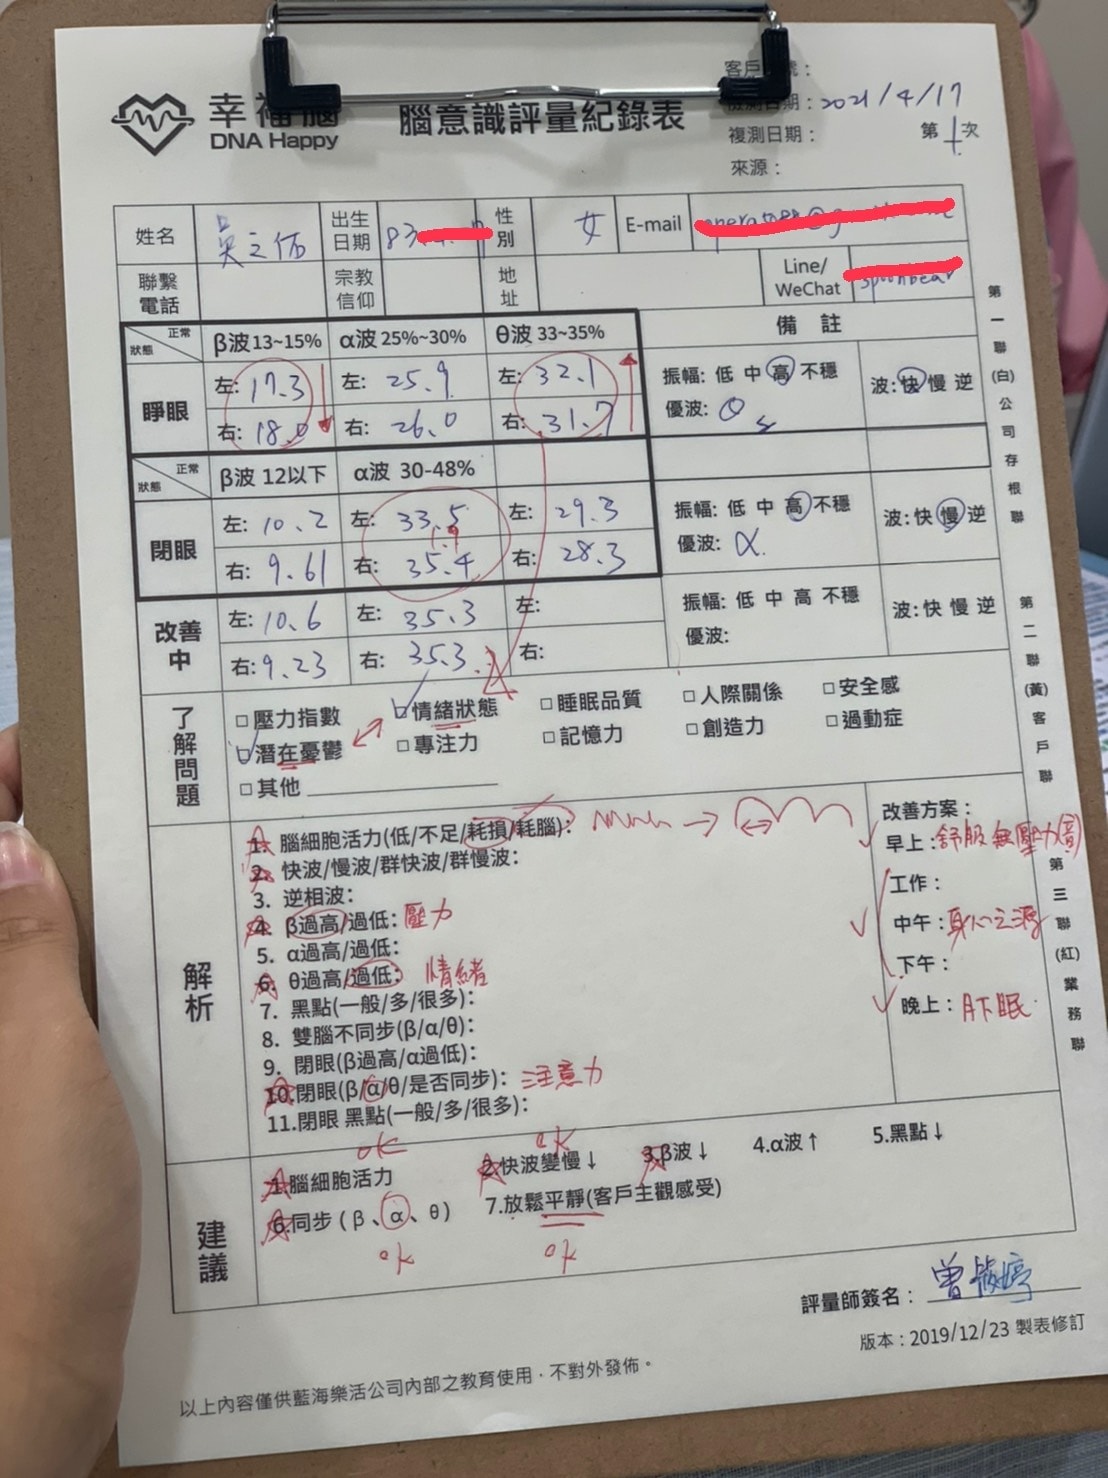 幸福腦
DNA Happy
腦意識評量紀錄表
客戶 號：
檢測日期：2021/4/17
複測日期：
第1次
來源：
姓名 吳之佰 出生日期 83 性別 女 E-mail
聯繫電話 宗教信仰 地址 Line/WeChat spoonbear
狀態 正常 β波 13~15% α波 25%~30% θ波 33~35% 備 註
睜眼 左: 17.3 左: 25.9 左: 32.1 振幅: 低 中 高 不穩 波: 快 慢 逆
右: 18.0 右: 26.0 右: 31.7 優波: θ
狀態 正常 β波 12以下 α波 30-48%
閉眼 左: 10.2 左: 33.5 左: 29.3 振幅: 低 中 高 不穩 波: 快 慢 逆
1.9
右: 9.61 右: 35.4 右: 28.3 優波: α.
改善中 左: 10.6 左: 35.3 左: 振幅: 低 中 高 不穩 波: 快 慢 逆
右: 9.23 右: 35.3 右: 優波:
了解問題
□壓力指數 □情緒狀態 □睡眠品質 □人際關係 □安全感
□潛在憂鬱 □專注力 □記憶力 □創造力 □過動症
□其他
解析
1. 腦細胞活力(低/不足/耗損/耗腦):
2. 快波/慢波/群快波/群慢波:
3. 逆相波:
4. β過高/過低: 壓力
5. α過高/過低:
6. θ過高/過低: 情緒
7. 黑點(一般/多/很多):
8. 雙腦不同步(β/α/θ):
9. 閉眼(β過高/α過低):
10.閉眼(β/α/θ/是否同步): 注意力
11.閉眼 黑點(一般/多/很多):
改善方案：
早上：舒服無壓力(音)
工作：
中午：身心之源
下午：
晚上：助眠
建議
ok ok
1.腦細胞活力 2.快波變慢↓ 3.β波↓ 4.α波↑ 5.黑點↓
6.同步(β、α、θ) 7.放鬆平靜(客戶主觀感受)
ok ok
評量師簽名：
版本：2019/12/23 製表修訂
以上內容僅供藍海樂活公司內部之教育使用，不對外發佈。
第一聯(白)公司存根聯
第二聯(黃)客戶聯
第三聯(紅)業務聯